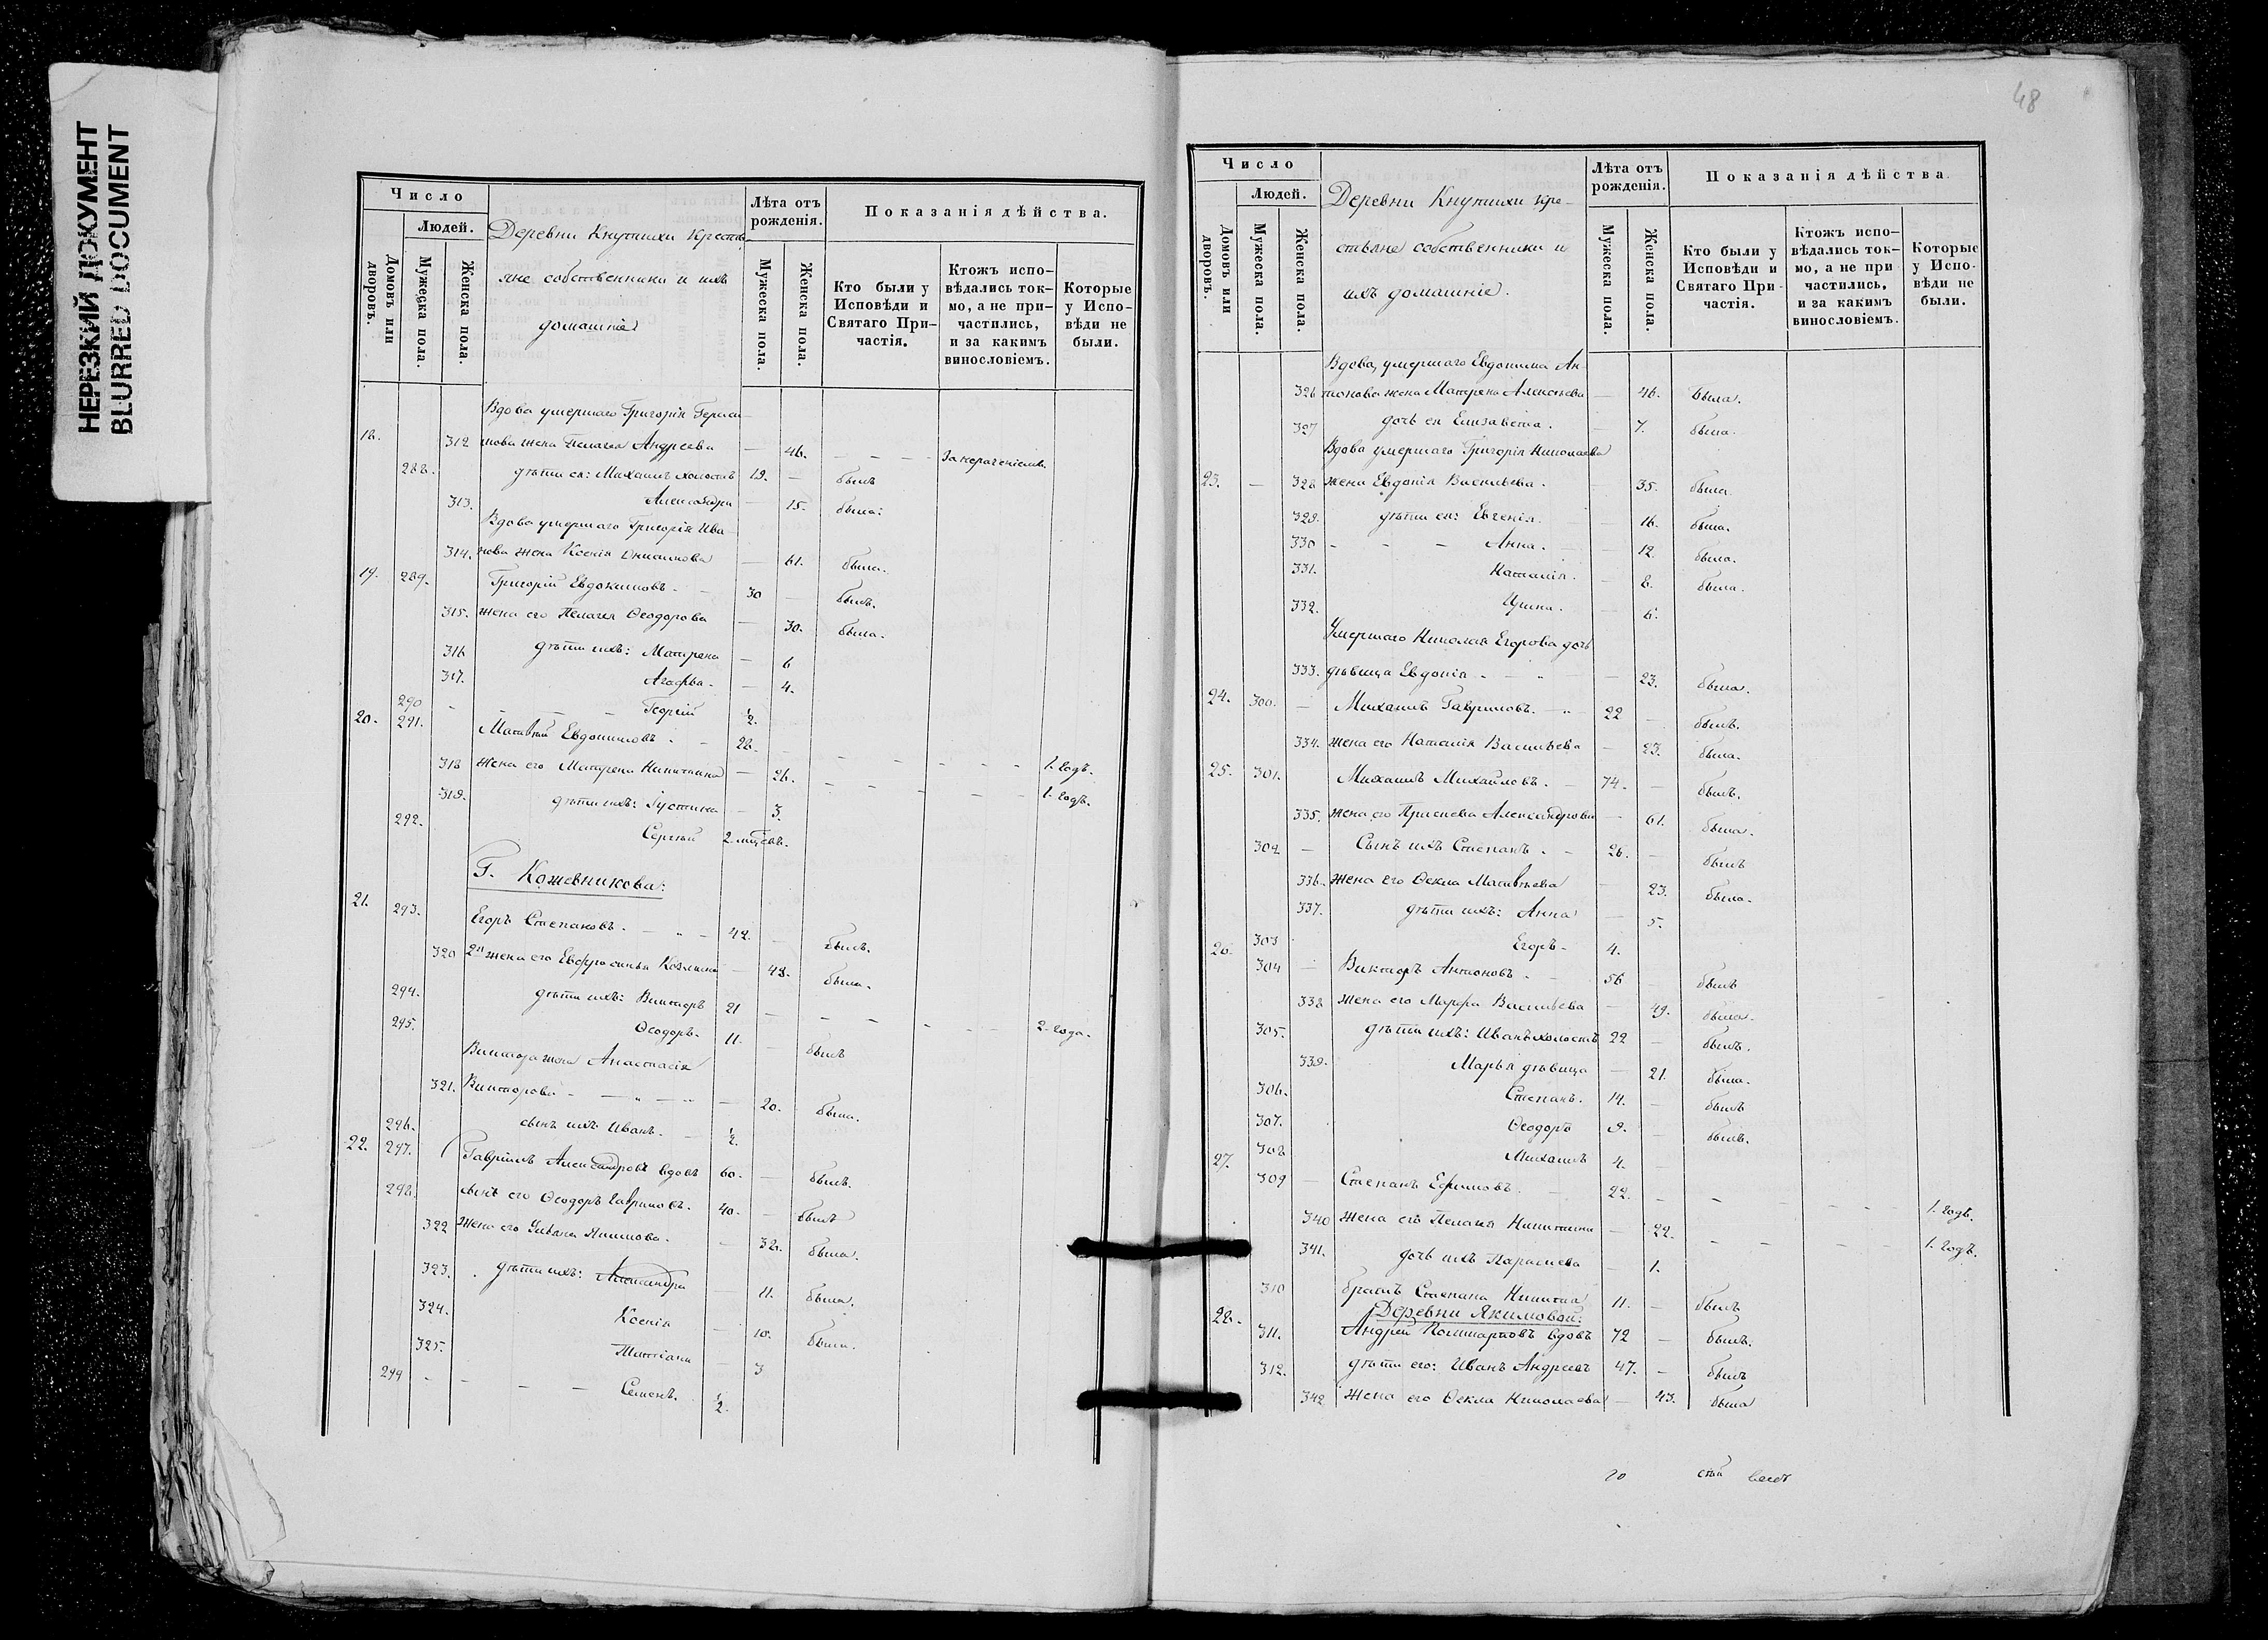 НЕРЕЗКИЙ ДОКУМЕНТ
BLURRED DOCUMENT
Число
Людей.
Домовъ или дворовъ.
Мужеска пола.
Женска пола.
Деревни Кнутихи Крестья-
яне собственники и ихъ
домашніе
Лѣта отъ рожденія.
Мужеска пола.
Женска пола.
Показанія дѣйства.
Кто были у Исповѣди и Святаго При-частія.
Ктожъ испо-вѣдались ток-мо, а не при-частились, и за какимъ винословіемъ.
Которые у Испо-вѣди не были.
Вдова умершаго Григорія Гераси
18. 312 мова жена Пелагея Андреева — 46. — — — За нераченіемъ.
288. дѣти ея: Михаилъ холостъ 19. — былъ
313. Александра — 15. была.
Вдова умершаго Григорія Ива
314. нова жена Ксенія Онисимова — 61. была.
19. 289. Григорій Евдокимовъ — 30 — былъ.
315. жена его Пелагея Ѳеодорова — 30. была.
316 дѣти ихъ: Матрена — 6
317. Агафья — 4.
290 Георгій 1/2.
20. 291. Матвѣй Евдокимовъ — 28. — 1. годъ.
318 жена его Матрена Никитина — 26. — 1. годъ.
319. дѣти ихъ: Іустина — 3.
292. Сергѣй 2. мѣсяц.
Г. Кожевникова:
21. 293. Егоръ Степановъ. — 42. — былъ.
320 2я жена его Евфросинья Козмина — 43. была.
294. дѣти ихъ: Викторъ 21 — 2. года.
295. Ѳеодоръ. 11. — былъ
Виктора жена Анастасія
321. Викторова — 20. была.
296. сынъ ихъ Иванъ. — 1/2.
22. 297. Гавріилъ Александровъ вдовъ 60. — былъ.
298. сынъ его Ѳеодоръ Гавриловъ. 40. — былъ
322 жена его Ульяна Акимова. — 32. была.
323. дѣти ихъ: Александра — 11. была.
324. Ксенія — 10. была.
325. Татіана — 3
299 — — — Семенъ. 1/2.
48
Число
Людей.
Домовъ или дворовъ.
Мужеска пола.
Женска пола.
Деревни Кнутихи Кре-
стьяне собственники и
ихъ домашніе.
Лѣта отъ рожденія.
Мужеска пола.
Женска пола.
Показанія дѣйства.
Кто были у Исповѣди и Святаго При-частія.
Ктожъ испо-вѣдались ток-мо, а не при частились, и за какимъ винословіемъ.
Которые у Испо-вѣди не были.
Вдова умершаго Евдокима Ан-
326 тонова жена Матрена Алексѣева — 46. была.
327 дочь ея Елизавета. — 7. была.
Вдова умершаго Григорія Николаева
23. — 328 жена Евдокія Васильева. — 35. была.
329. дѣти ея: Евгенія. — 16. была.
330 — — Анна. — 12. была.
331. Наталія. — 8. была.
332. Ирина. — 6.
Умершаго Николая Егорова дочь
333. дѣвица Евдокія — 23. была.
24. 300. — Михаилъ Гавриловъ. — 22 — былъ.
334. жена его Наталія Васильева — 23. была.
25. 301. Михаилъ Михайловъ. — 74. — былъ.
335. жена его Александрова — 61. была.
302 — Сынъ ихъ Степанъ. — 26. — былъ
336. жена его Ѳекла Матвѣева — 23. была.
337. дѣти ихъ: Анна — 5.
303 Егоръ — 4.
26. 304 — Викторъ Антоновъ. — 56 — былъ
338 жена его Марфа Васильева — 49. была.
305. дѣти ихъ: Иванъ холостъ 22 — былъ.
339. Марья дѣвица — 21. была.
306. Степанъ. 14. — былъ
307. Ѳеодоръ 9. — былъ.
308 Михаилъ 4. —
27. 309 — Степанъ Ефимовъ — 22. — — — 1. годъ.
340 жена его Пелагея Никитина — 22. — — 1. годъ.
341. дочь ихъ Параскева — 1.
310 братъ Степана Никита 11. — былъ
Деревни Якимовой:
28. 311. Андрей вдовъ 72 — былъ.
312. дѣти его: Иванъ Андреевъ 47. — былъ
342 жена его Ѳекла Николаева — 43. была